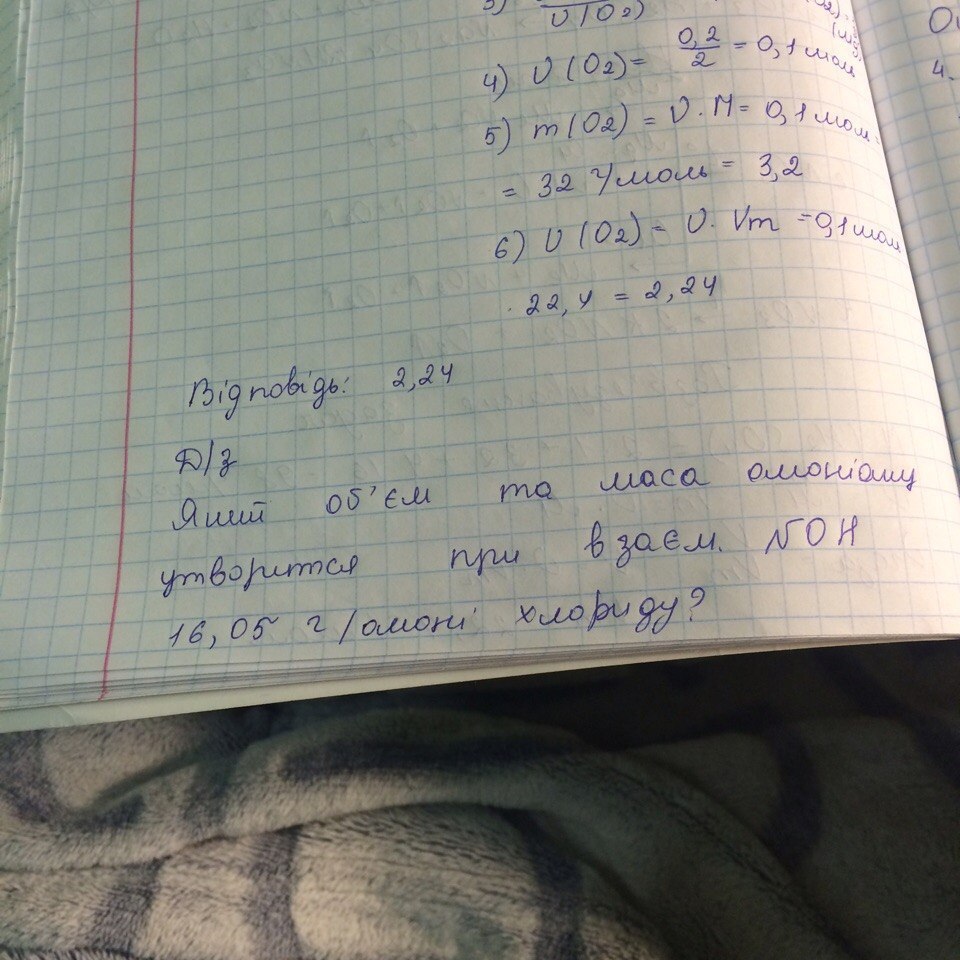 3) υ(O2)
4) υ(O2) = 0,2/2 = 0,1 мол
5) m(O2) = υ·M = 0,1 мол·
= 32 г/моль = 3,2
6) υ(O2) = υ·Vm = 0,1 мол
·22,4 = 2,24
Відповідь: 2,24
Д/з
Який об'єм та маса амоніаму
утвориться при взаєм. NOH
16,05 г/амоні хлориду?
4.